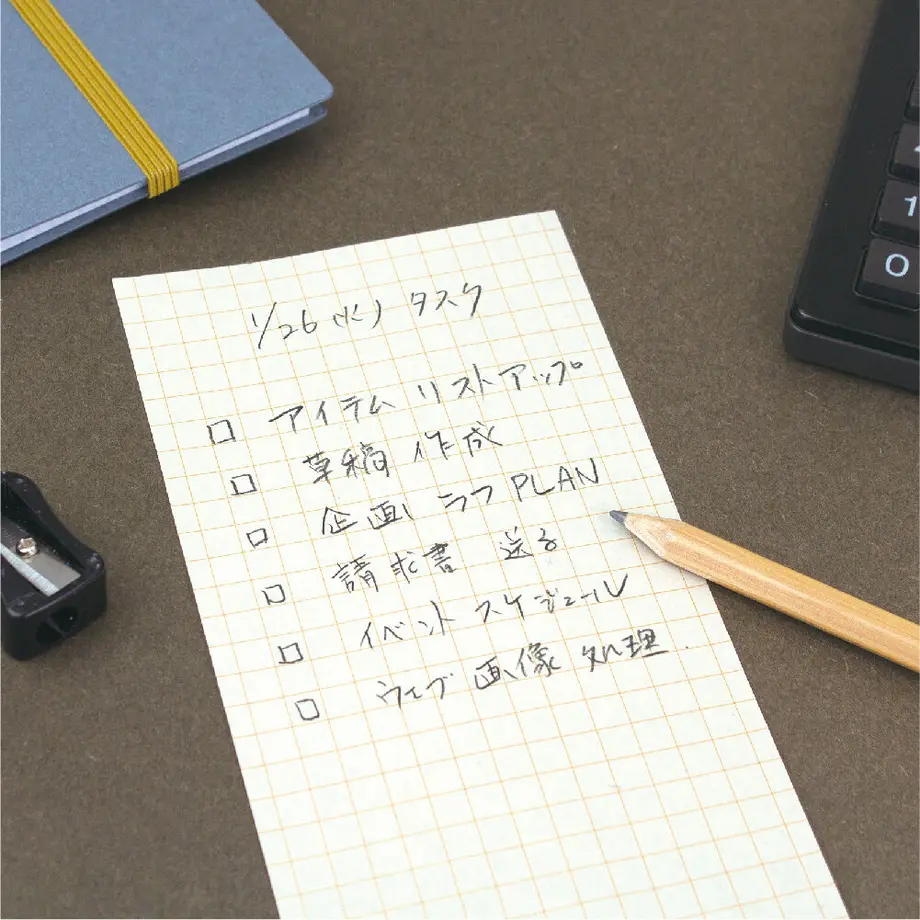 1/26(火) タスク
□ アイテム リストアップ
□ 草稿 作成
□ 企画 ラフ PLAN
□ 請求書 送る
□ イベント スケジュール
□ ウェブ 画像 処理.
1
0